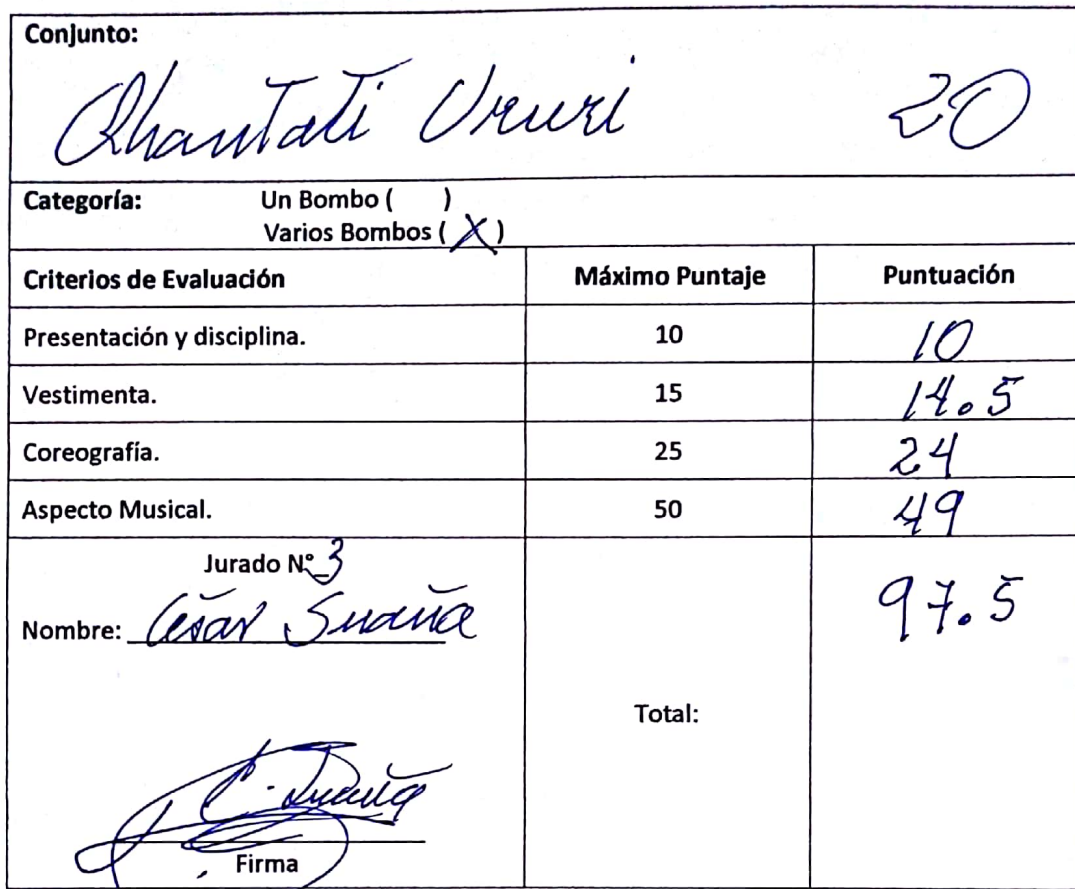 Conjunto:
Qhantati Ururi 20
Categoría: Un Bombo ( )
Varios Bombos ( X )
Criterios de Evaluación Máximo Puntaje Puntuación
Presentación y disciplina. 10 10
Vestimenta. 15 14.5
Coreografía. 25 24
Aspecto Musical. 50 49
Jurado N° 3
Nombre: César Suaña
97.5
Total:
C. Suaña
Firma